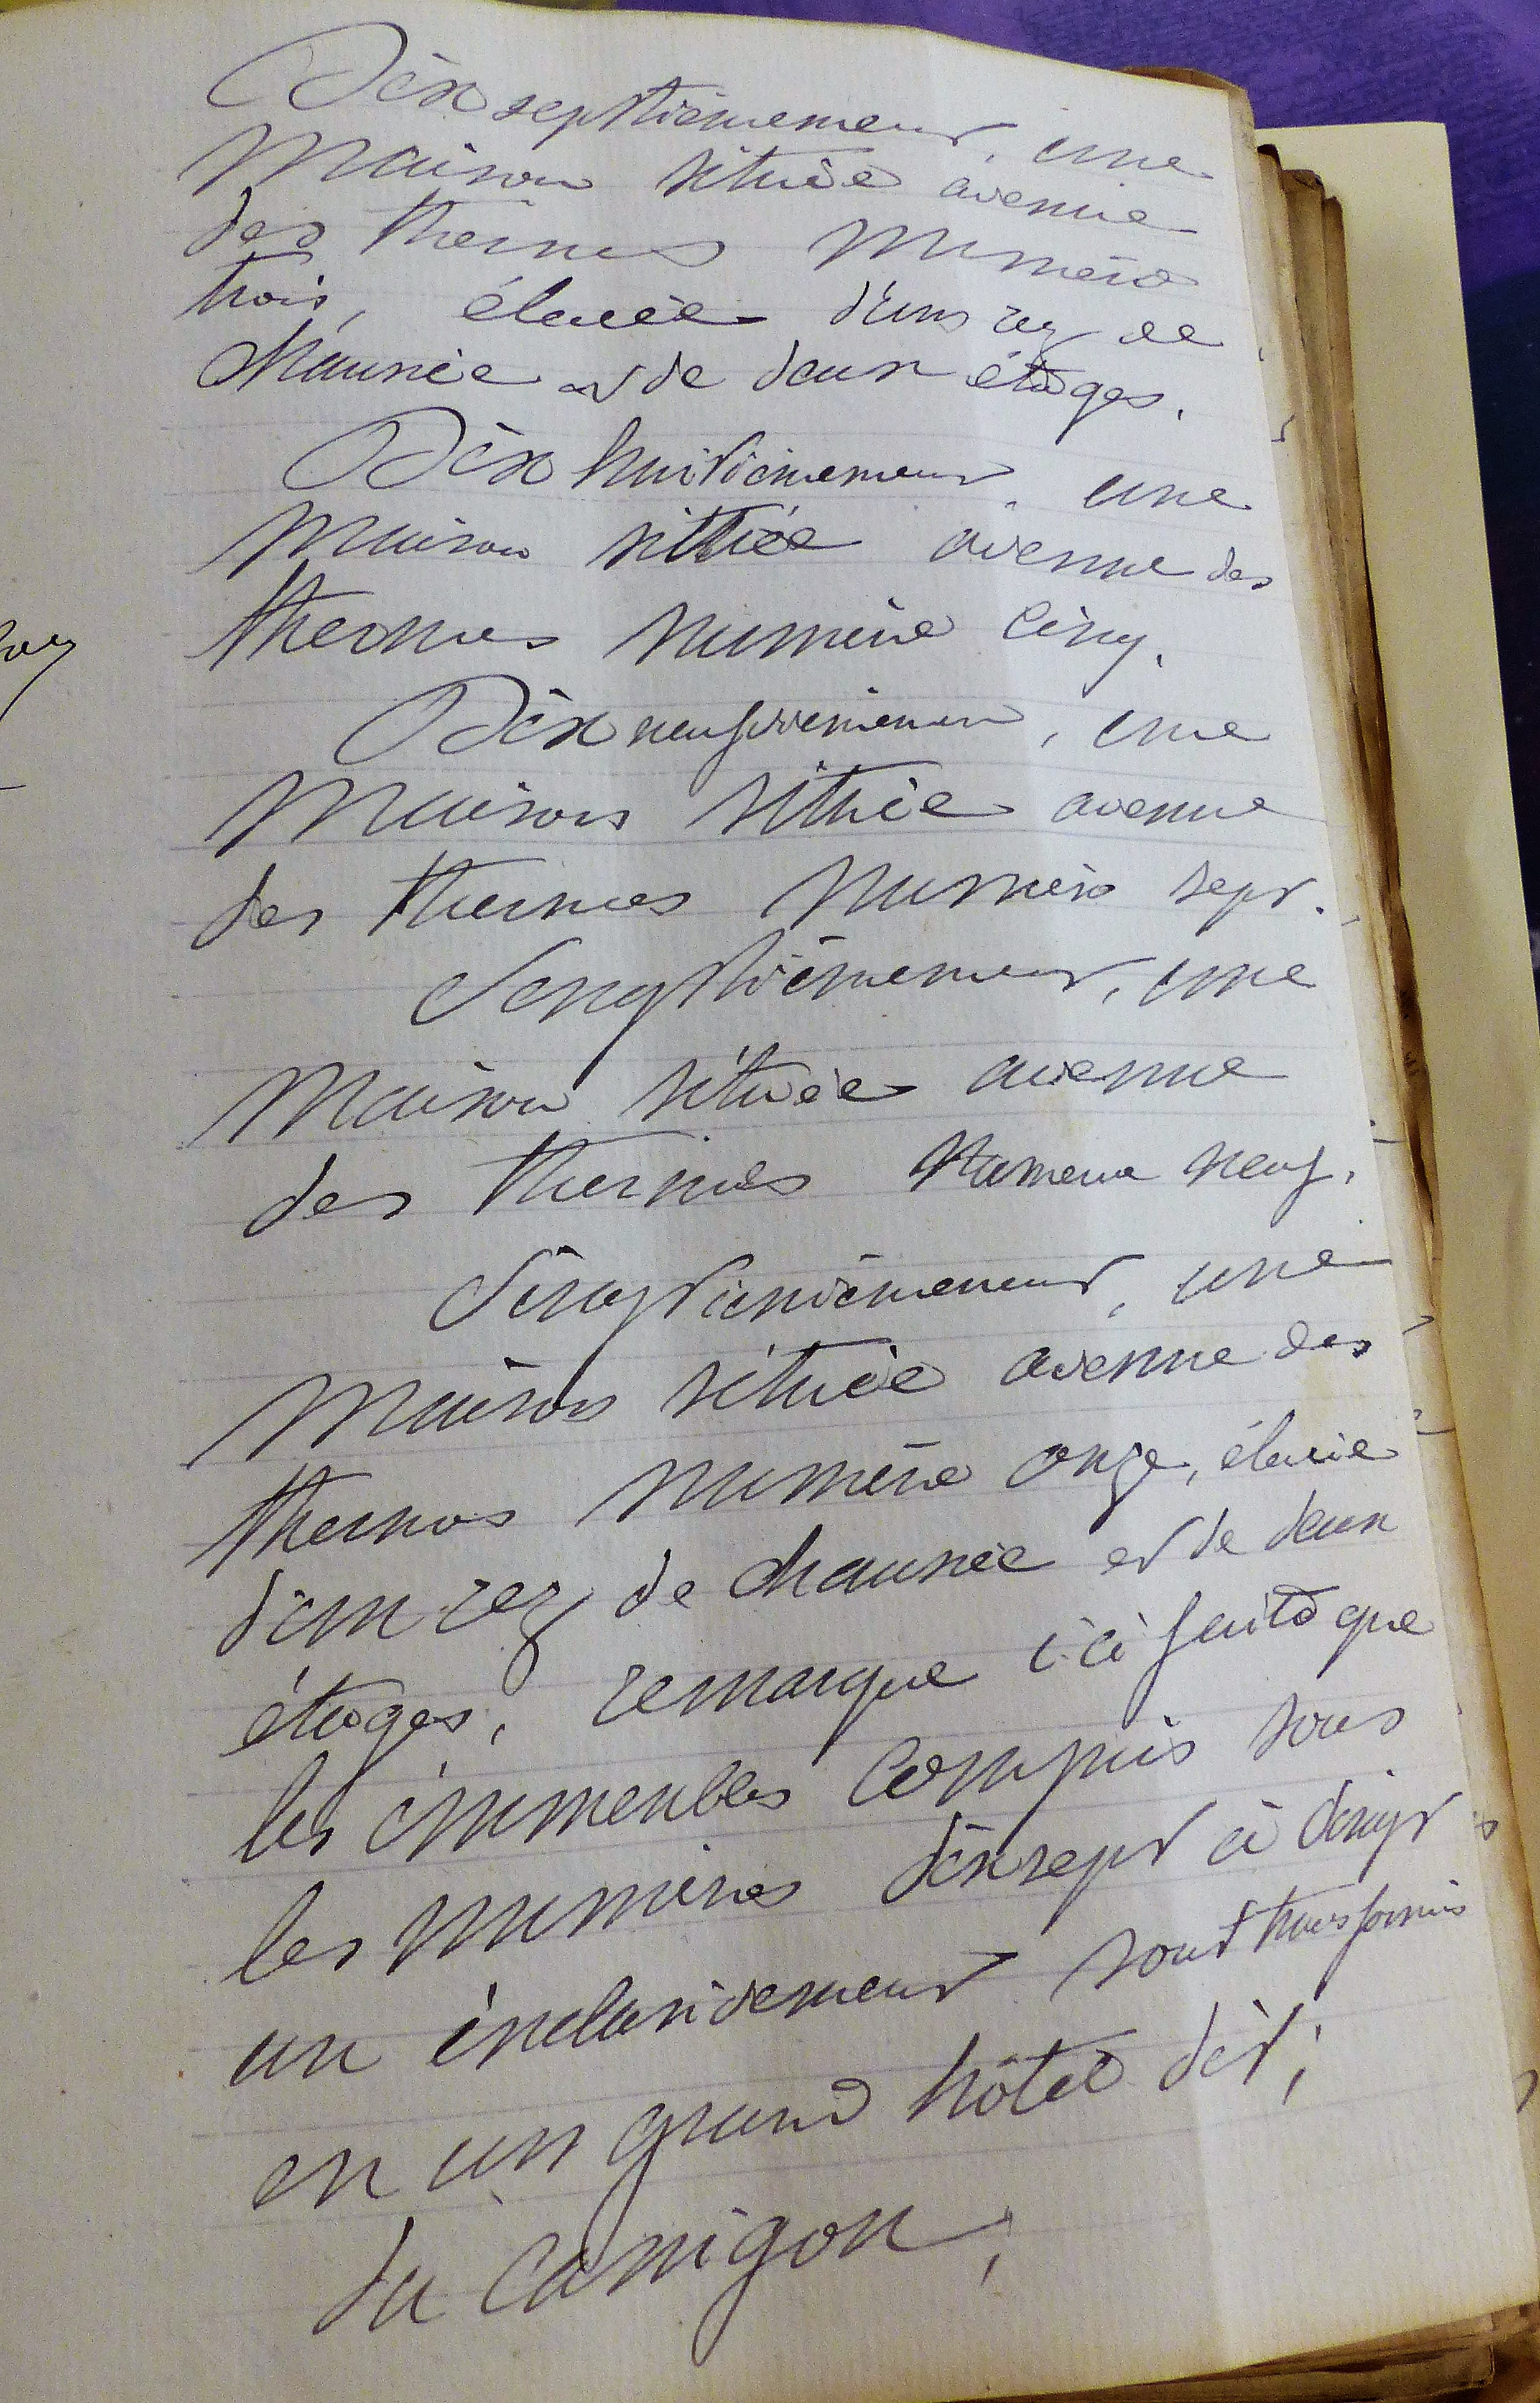 Dix septièmement, une
maison située avenue
des thermes numéro
trois, élevée d'un rez de
chaussée et de deux étages.
Dix huitièmement, une
maison située avenue des
thermes numéro cinq.
Dix neuvièmement, une
maison située avenue
des thermes numéro sept.
Vingtièmement, une
maison située avenue
des thermes numéro neuf.
Vingt unièmement, une
maison située avenue des
thermes numéro onze, élevée
d'un rez de chaussée et de deux
étages, remarque ici faite que
les immeubles compris sous
les numéros dix sept à vingt
un inclusivement sont transformés
en un grand hôtel dit,
du Canigou,